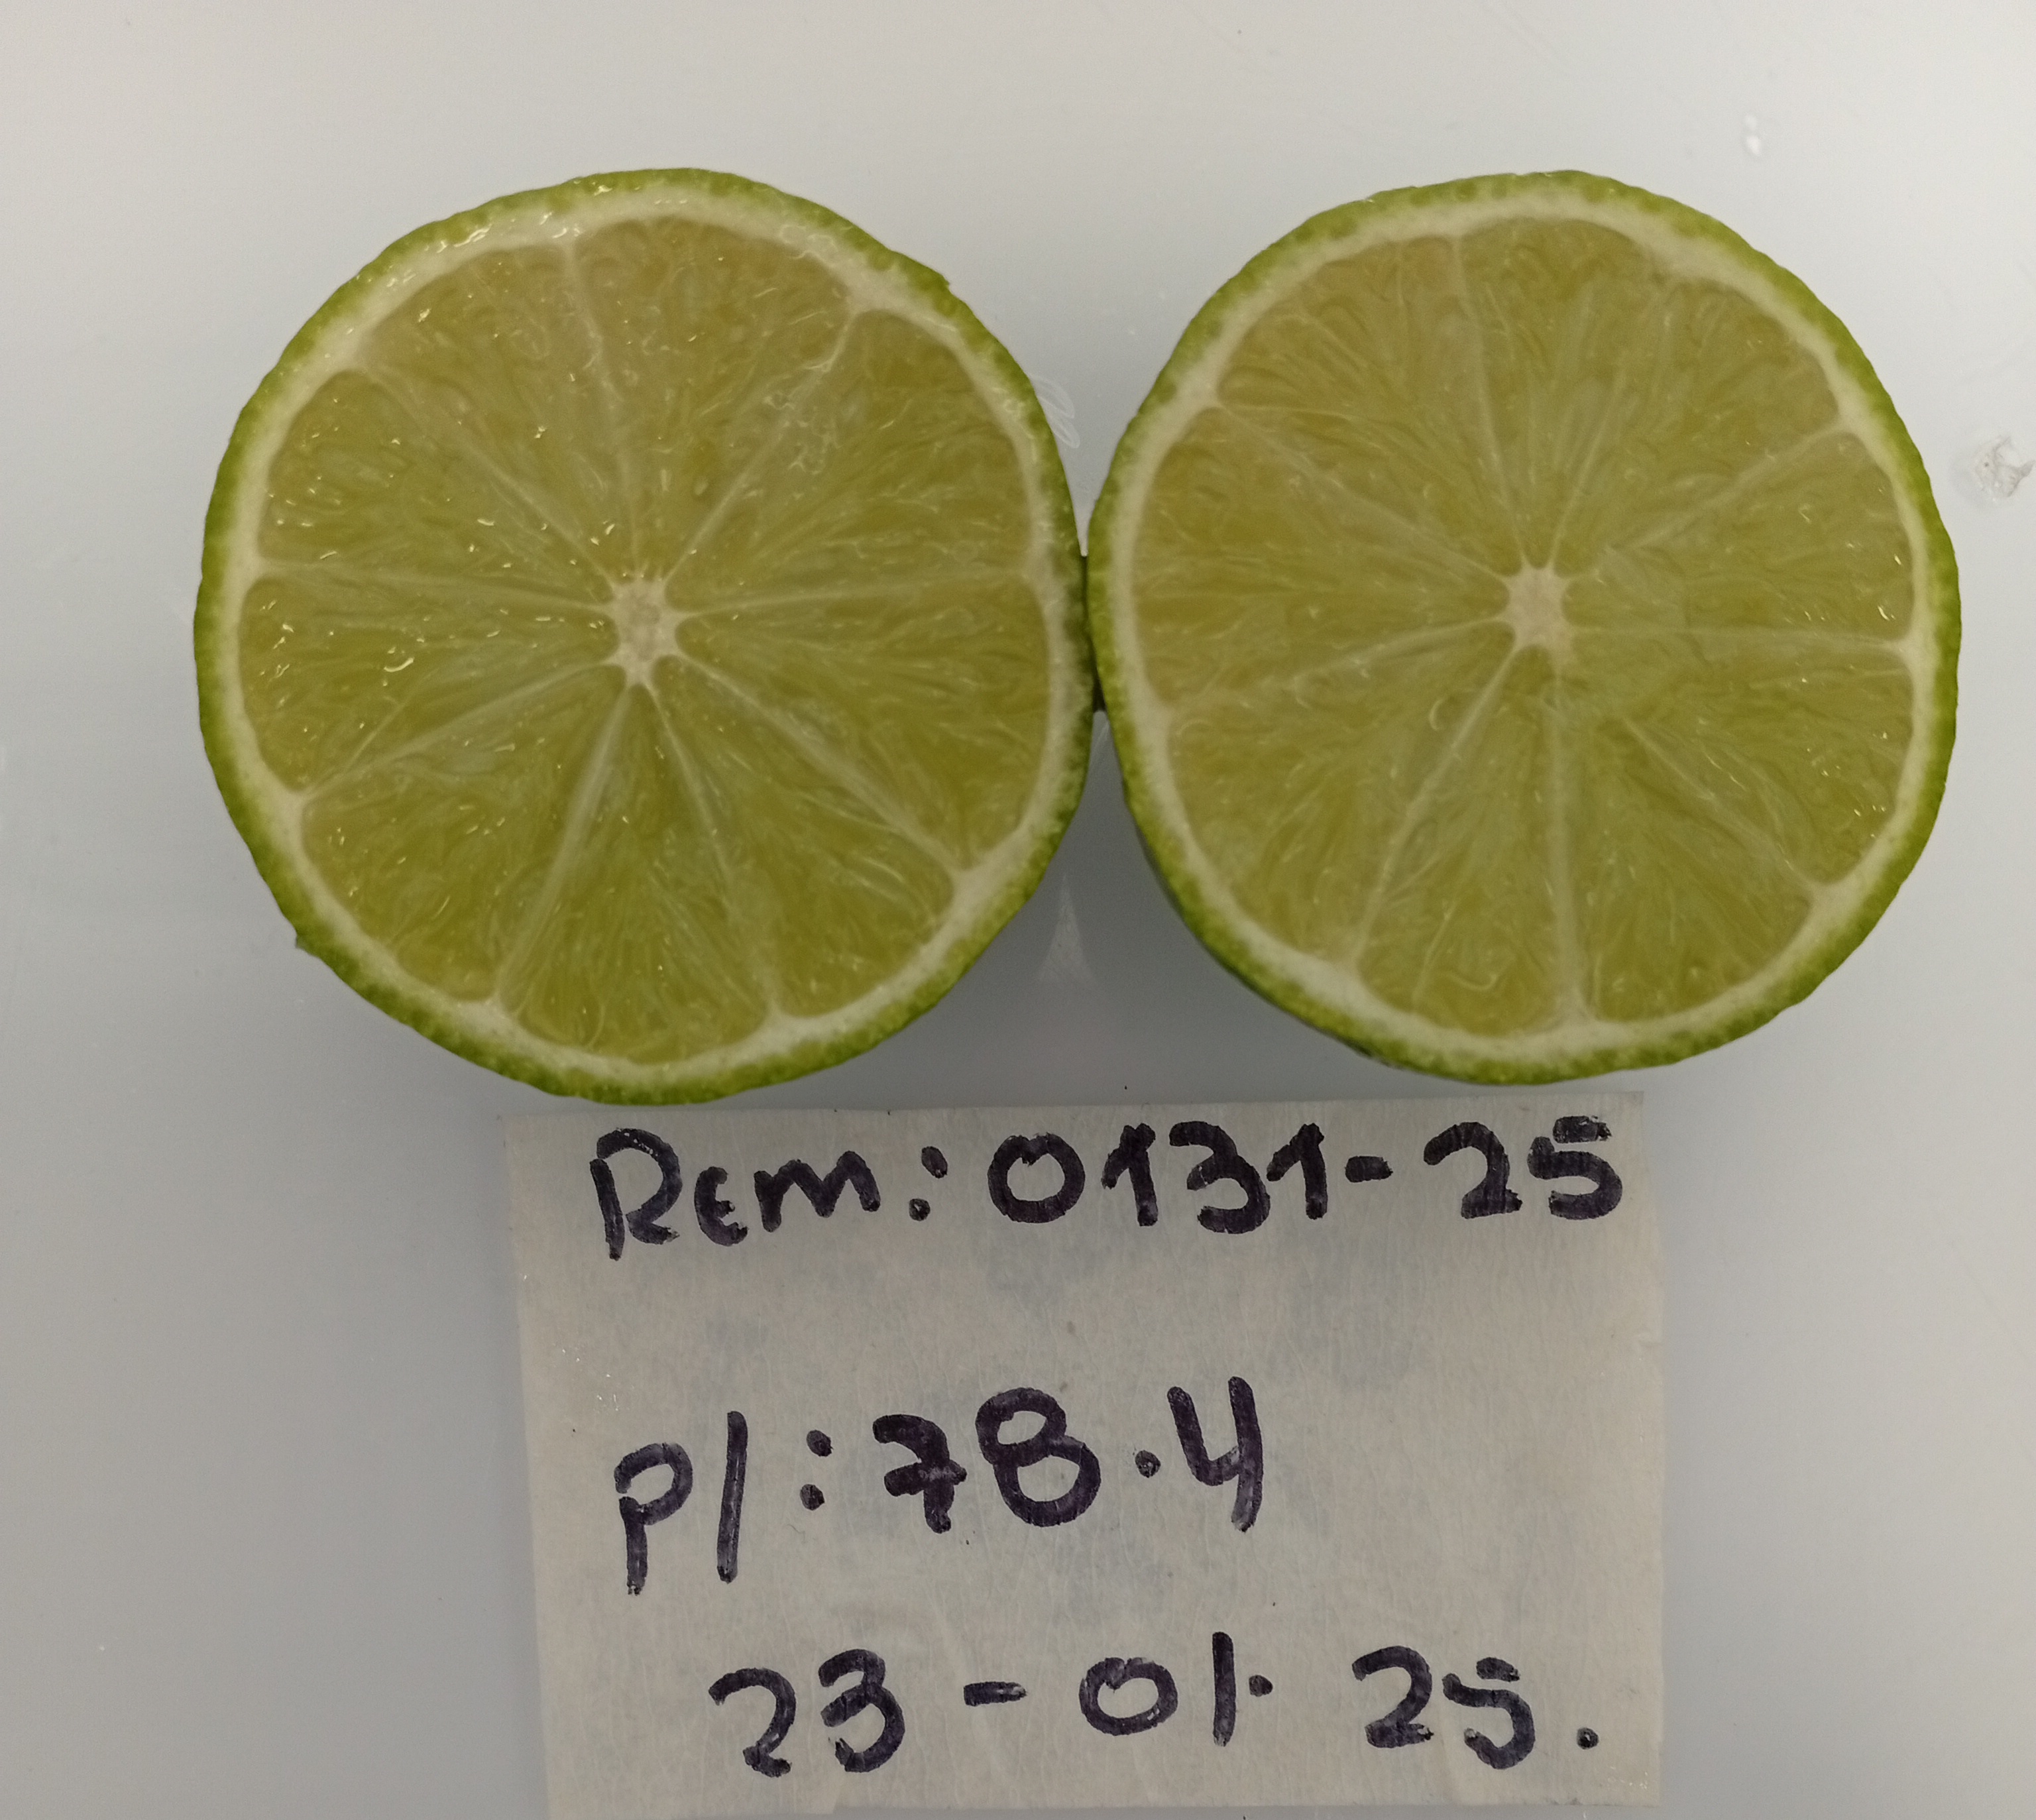 Rem: 0131-25
P/: 78.4
23-01. 25.